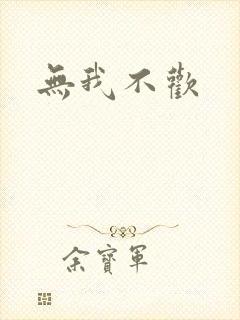 無我不歡
余寶軍